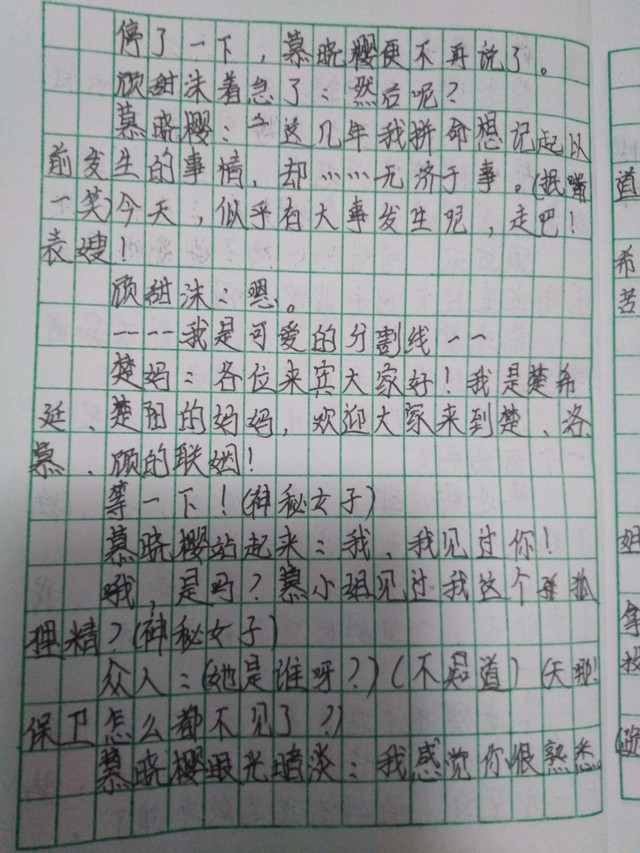 停了一下，慕晓樱便不再说了。
顾甜沫着急了：然后呢？
慕晓樱：这几年我拼命想记起以
前发生的事情，却……无济于事。(抿嘴
一笑)今天，似乎有大事发生呢，走吧！
表嫂！
顾甜沫：嗯。
----我是可爱的分割线--
楚妈：各位来宾大家好！我是楚希
廷、楚阳的妈妈，欢迎大家来到楚、洛、
慕、顾的联姻！
等一下！(神秘女子)
慕晓樱站起来：我、我见过你！
哦，是吗？慕小姐见过我这个狐
狸精？(神秘女子)
众人：(她是谁呀？)(不知道)(天哪！
保卫怎么都不见了？)
慕晓樱眼光暗淡：我感觉你很熟悉。
道
希
苦
姐